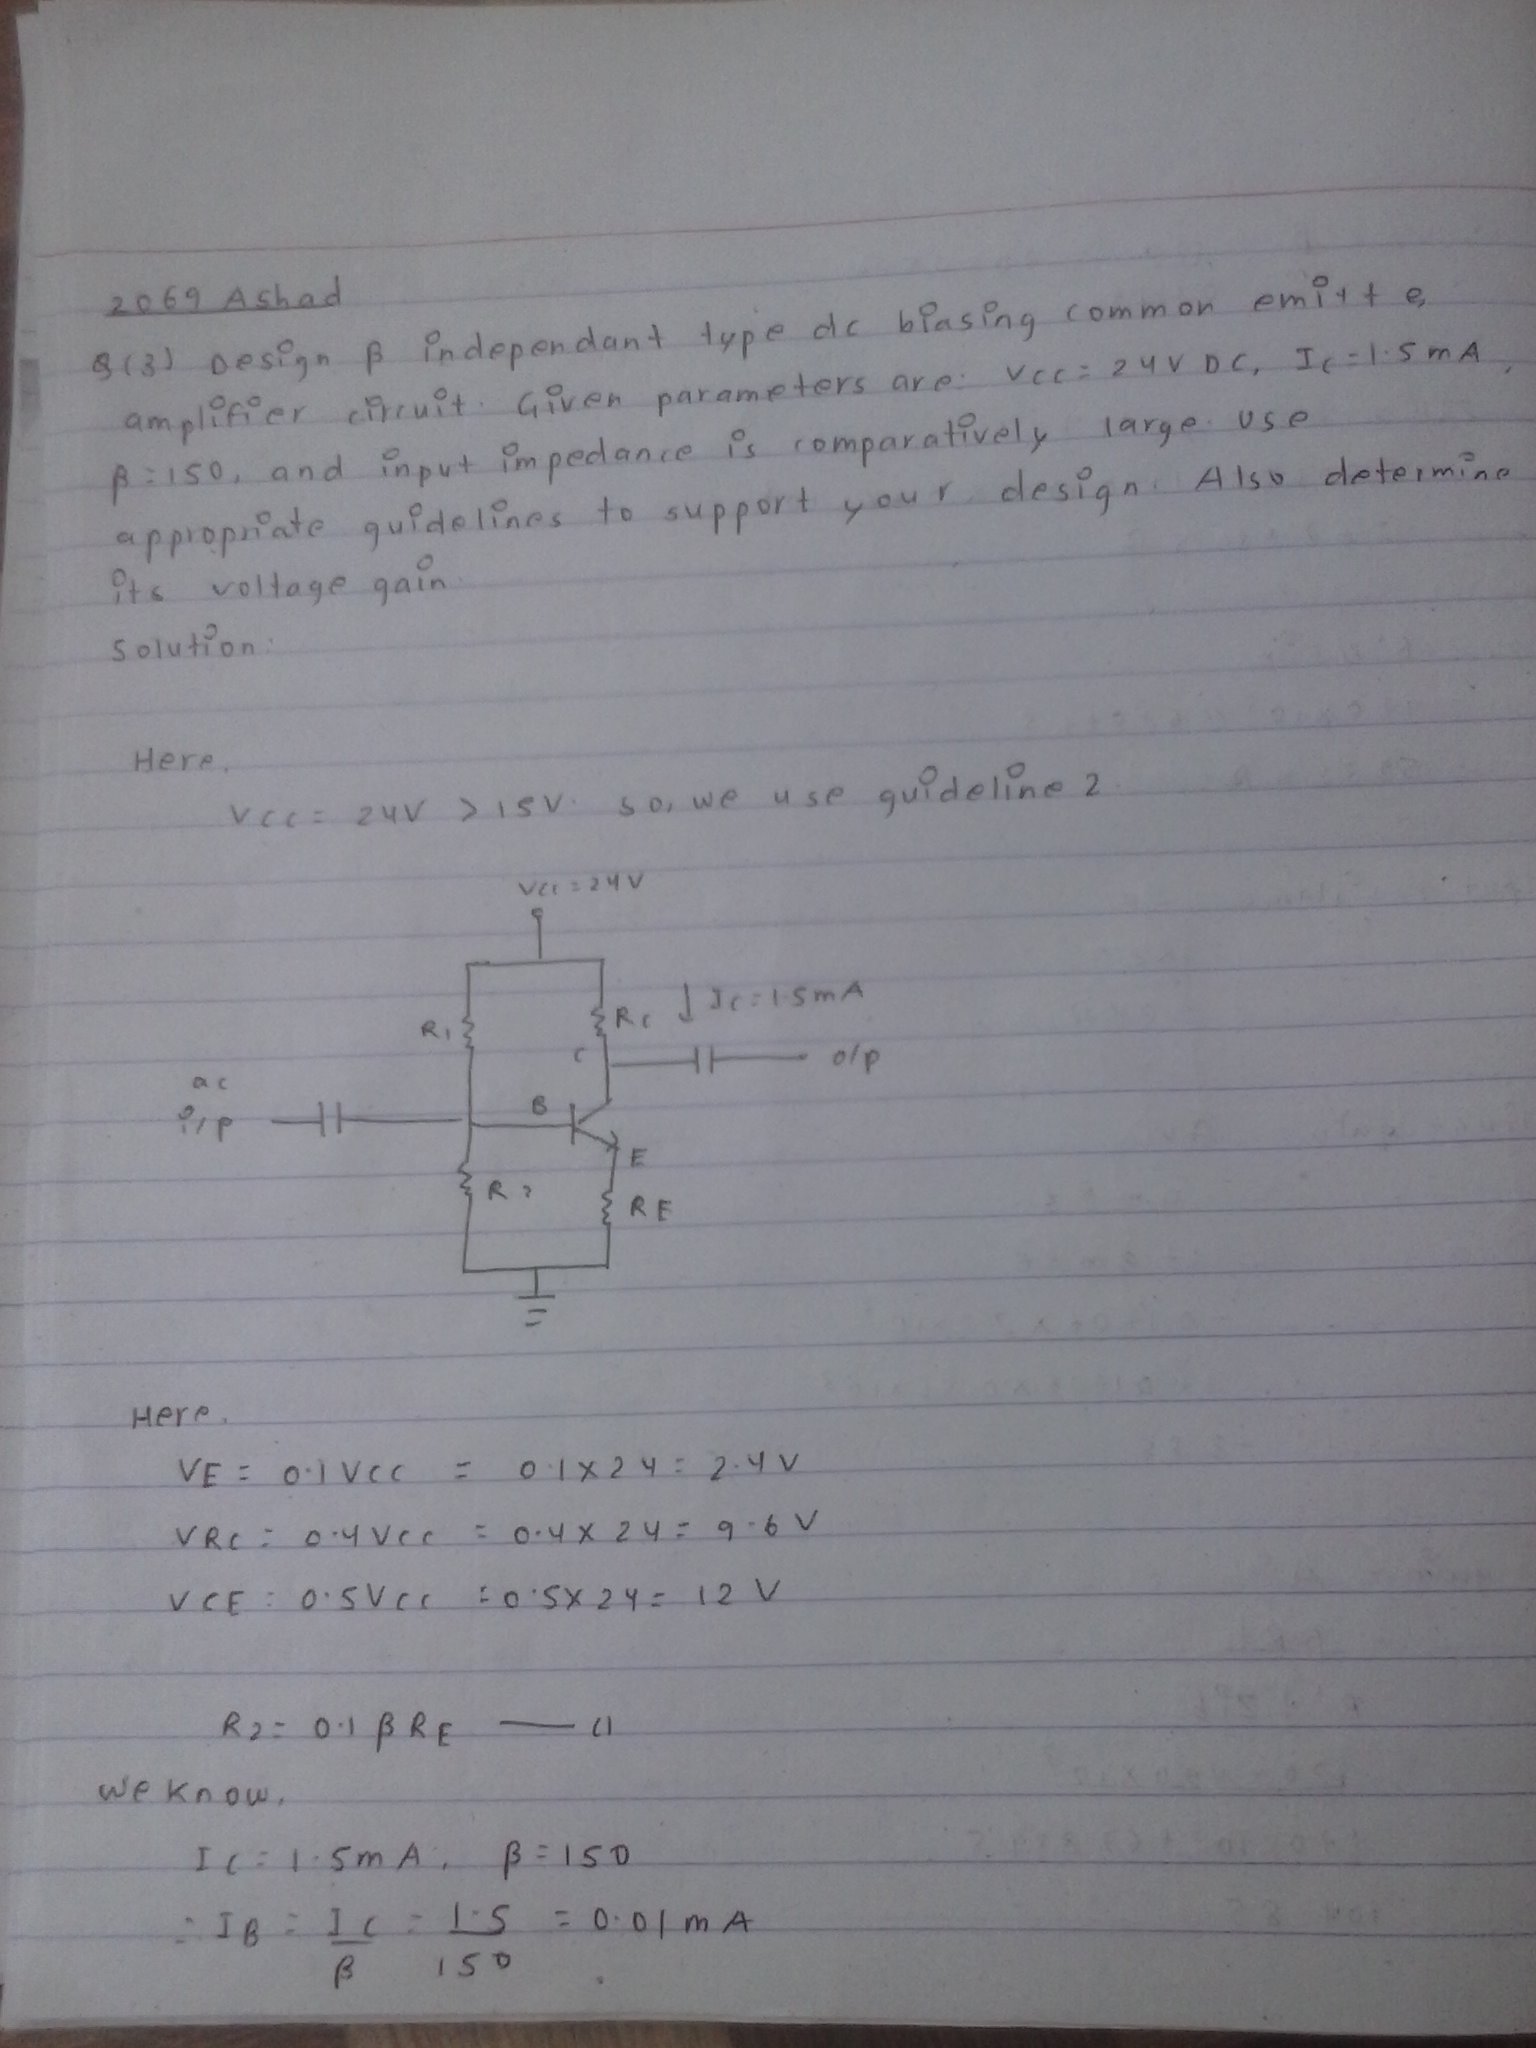 2069 Ashad
Q(3) Design β independant type dc biasing common emitte
amplifier circuit. Given parameters are: VCC = 24V DC, IC = 1.5mA,
β = 150, and input impedance is comparatively large. Use
appropriate guidelines to support your design. Also determine
its voltage gain.
Solution:
Here,
VCC = 24V > 15V. so, we use guideline 2.
VCC = 24V
R1
RC ↓ IC = 1.5mA
C
o/p
ac
i/p
B
E
R2
RE
Here,
VE = 0.1 VCC = 0.1 × 24 = 2.4 V
VRC = 0.4 VCC = 0.4 × 24 = 9.6 V
VCE = 0.5 VCC = 0.5 × 24 = 12 V
R2 = 0.1 β RE —
We know,
IC = 1.5mA, β = 150
∴ IB = IC/β = 1.5/150 = 0.01 mA